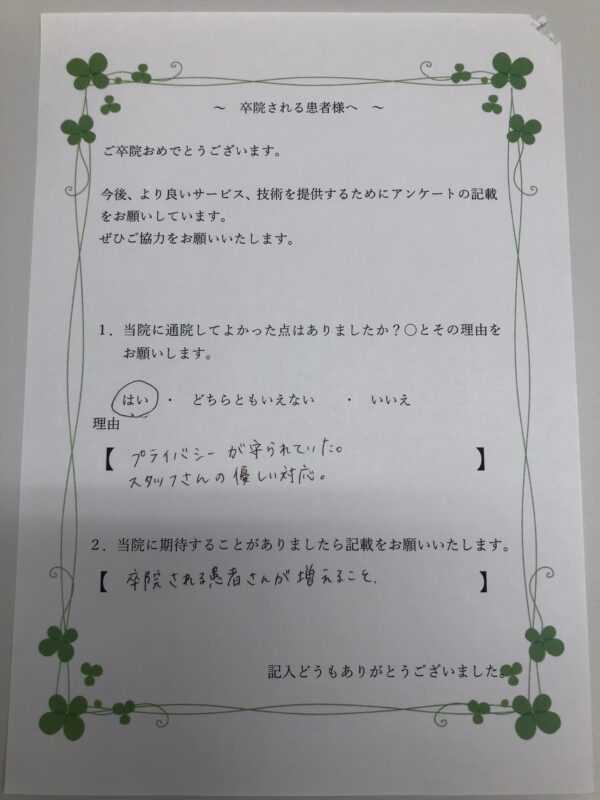 ～　卒院される患者様へ　～
ご卒院おめでとうございます。
今後、より良いサービス、技術を提供するためにアンケートの記載
をお願いしています。
ぜひご協力をお願いいたします。
１．当院に通院してよかった点はありましたか？〇とその理由を
お願いします。
はい　・　どちらともいえない　・　いいえ
理由
【　プライバシーが守られていた。
スタッフさんの優しい対応。　】
２．当院に期待することがありましたら記載をお願いいたします。
【　卒院される患者さんが増えること。　】
記入どうもありがとうございました。